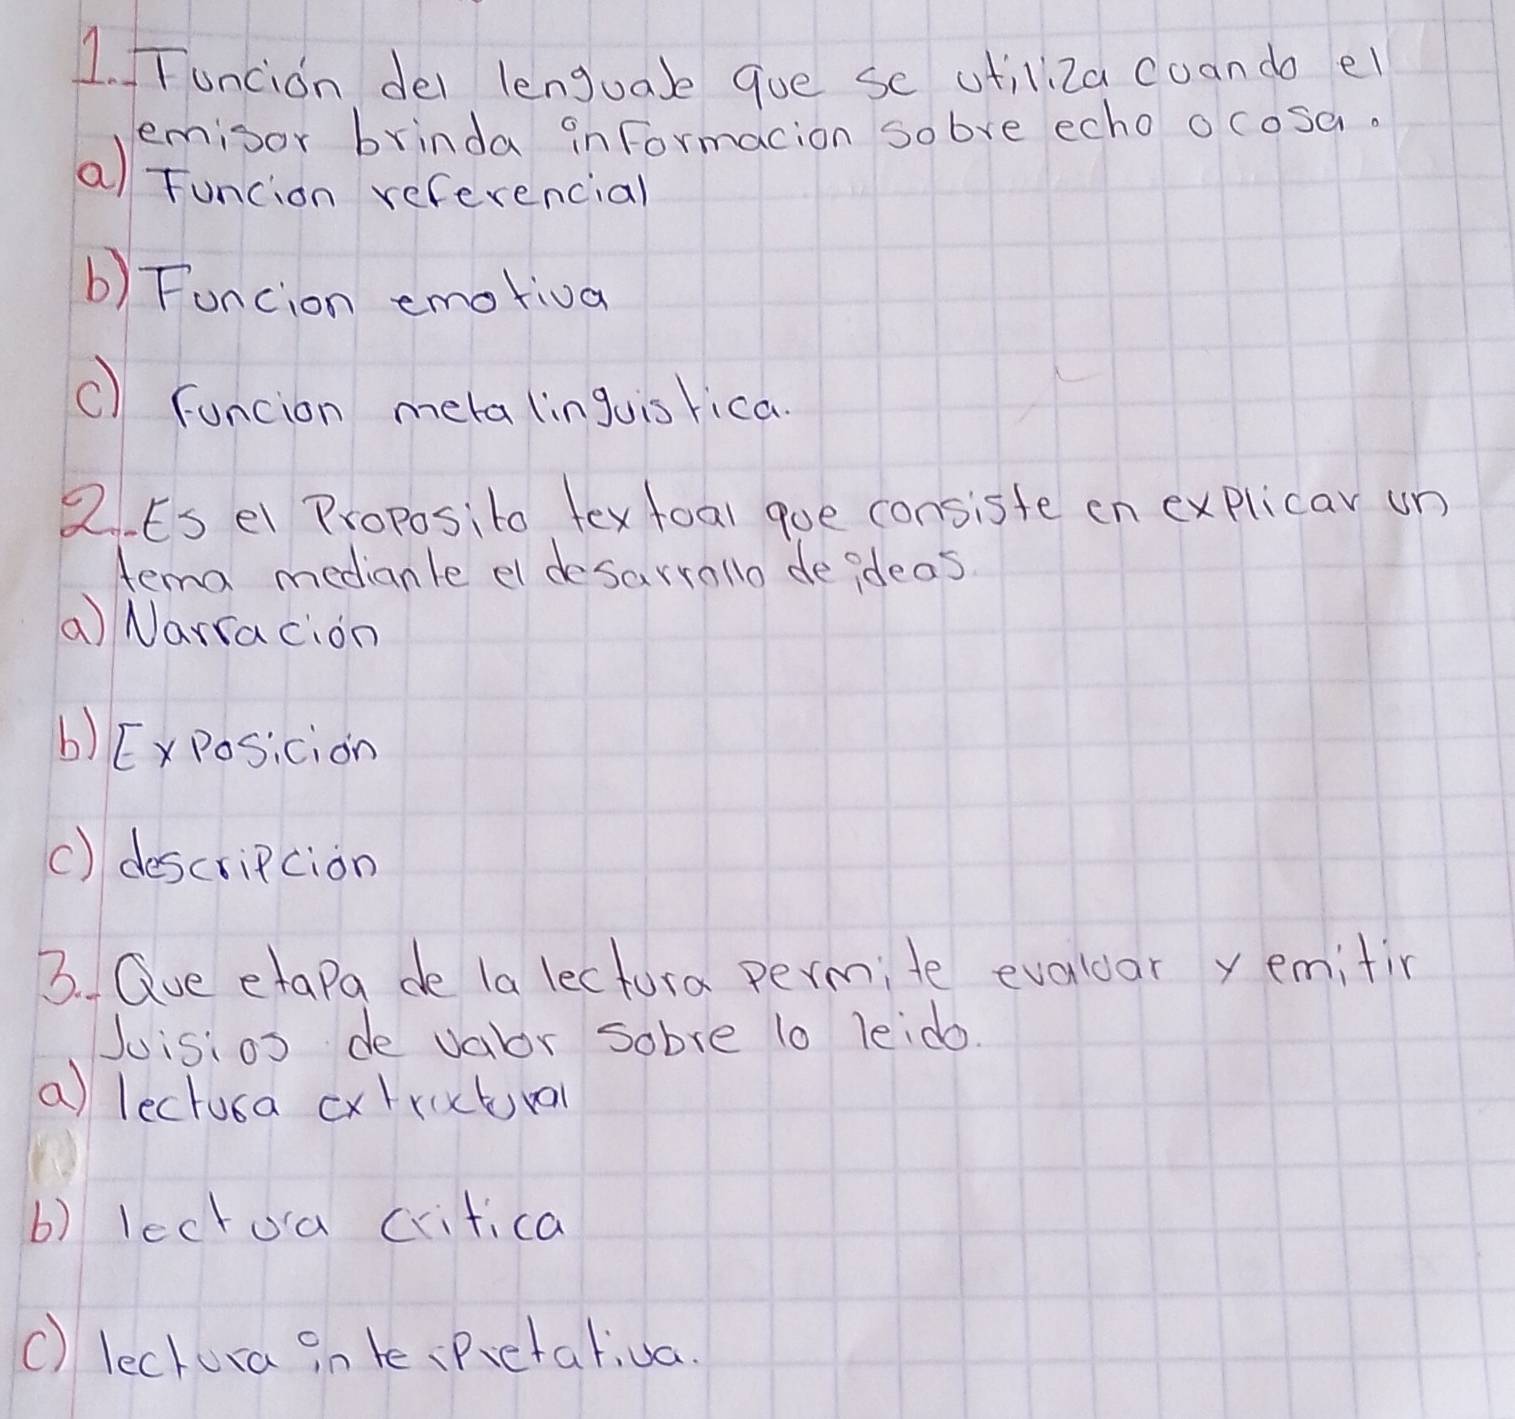 1.- Función del lenguaje que se utiliza cuando el
emisor brinda informacion sobre echo o cosa.
a) Funcion referencial
b) Funcion emotiva
c) funcion metalinguistica.
2.- Es el Proposito textual que consiste en explicar un
tema mediante el desarrollo de ideas.
a) Narración
b) Exposición
c) descripción
3.- Que etapa de la lectura permite evaluar y emitir
Juisios de valor sobre lo leido.
a) lectura extructural
b) lectura critica
c) lectura interpretativa.